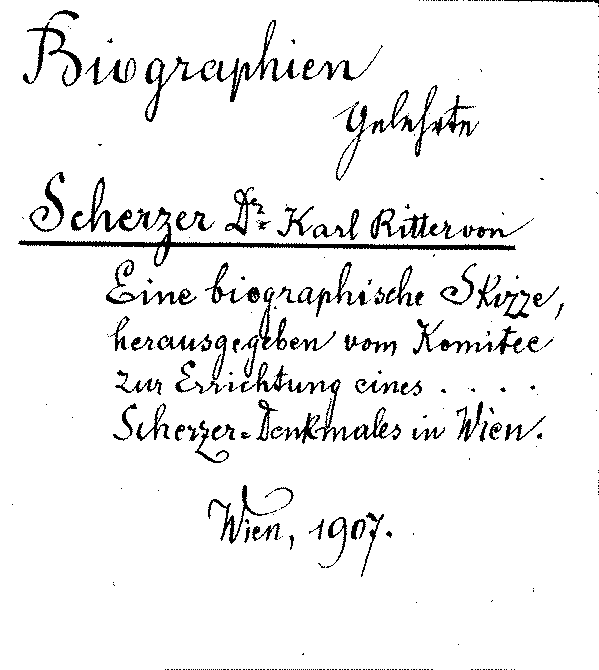 Biographien
Gelehrte
Scherzer Dr. Karl Ritter von
Eine biographische Skizze,
herausgegeben vom Komitee
zur Errichtung eines . . . .
Scherzer-Denkmales in Wien.
Wien, 1907.